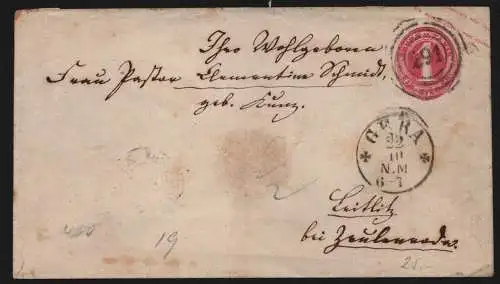 Ihro Wohlgeboren
291
Frau Pastor Clementine Schmidt,
geb. Kunz.
GERA
22
10
N.M
6-7
Leitlitz
bei Zeulenroda.
2
19